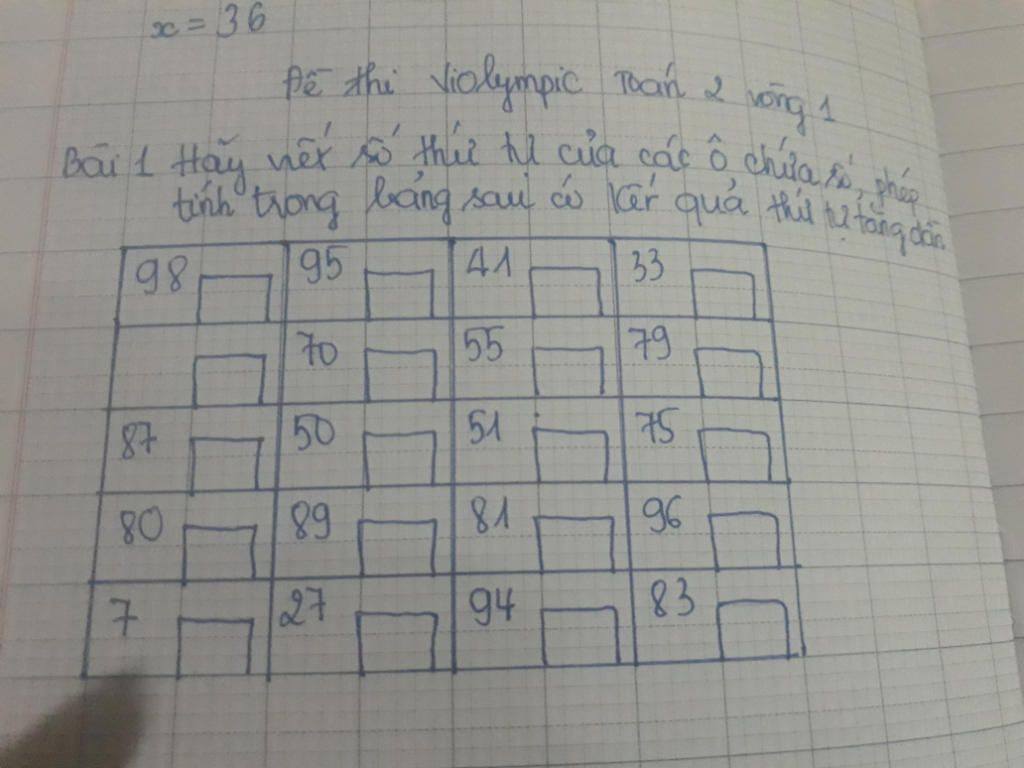 x = 36
Đề thi Violympic Toán 2 vòng 1
Bài 1 Hãy viết số thứ tự của các ô chứa số, phép
tính trong bảng sau có kết quả thứ tự tăng dần
98 95 41 33
70 55 79
87 50 51 75
80 89 81 96
7 27 94 83